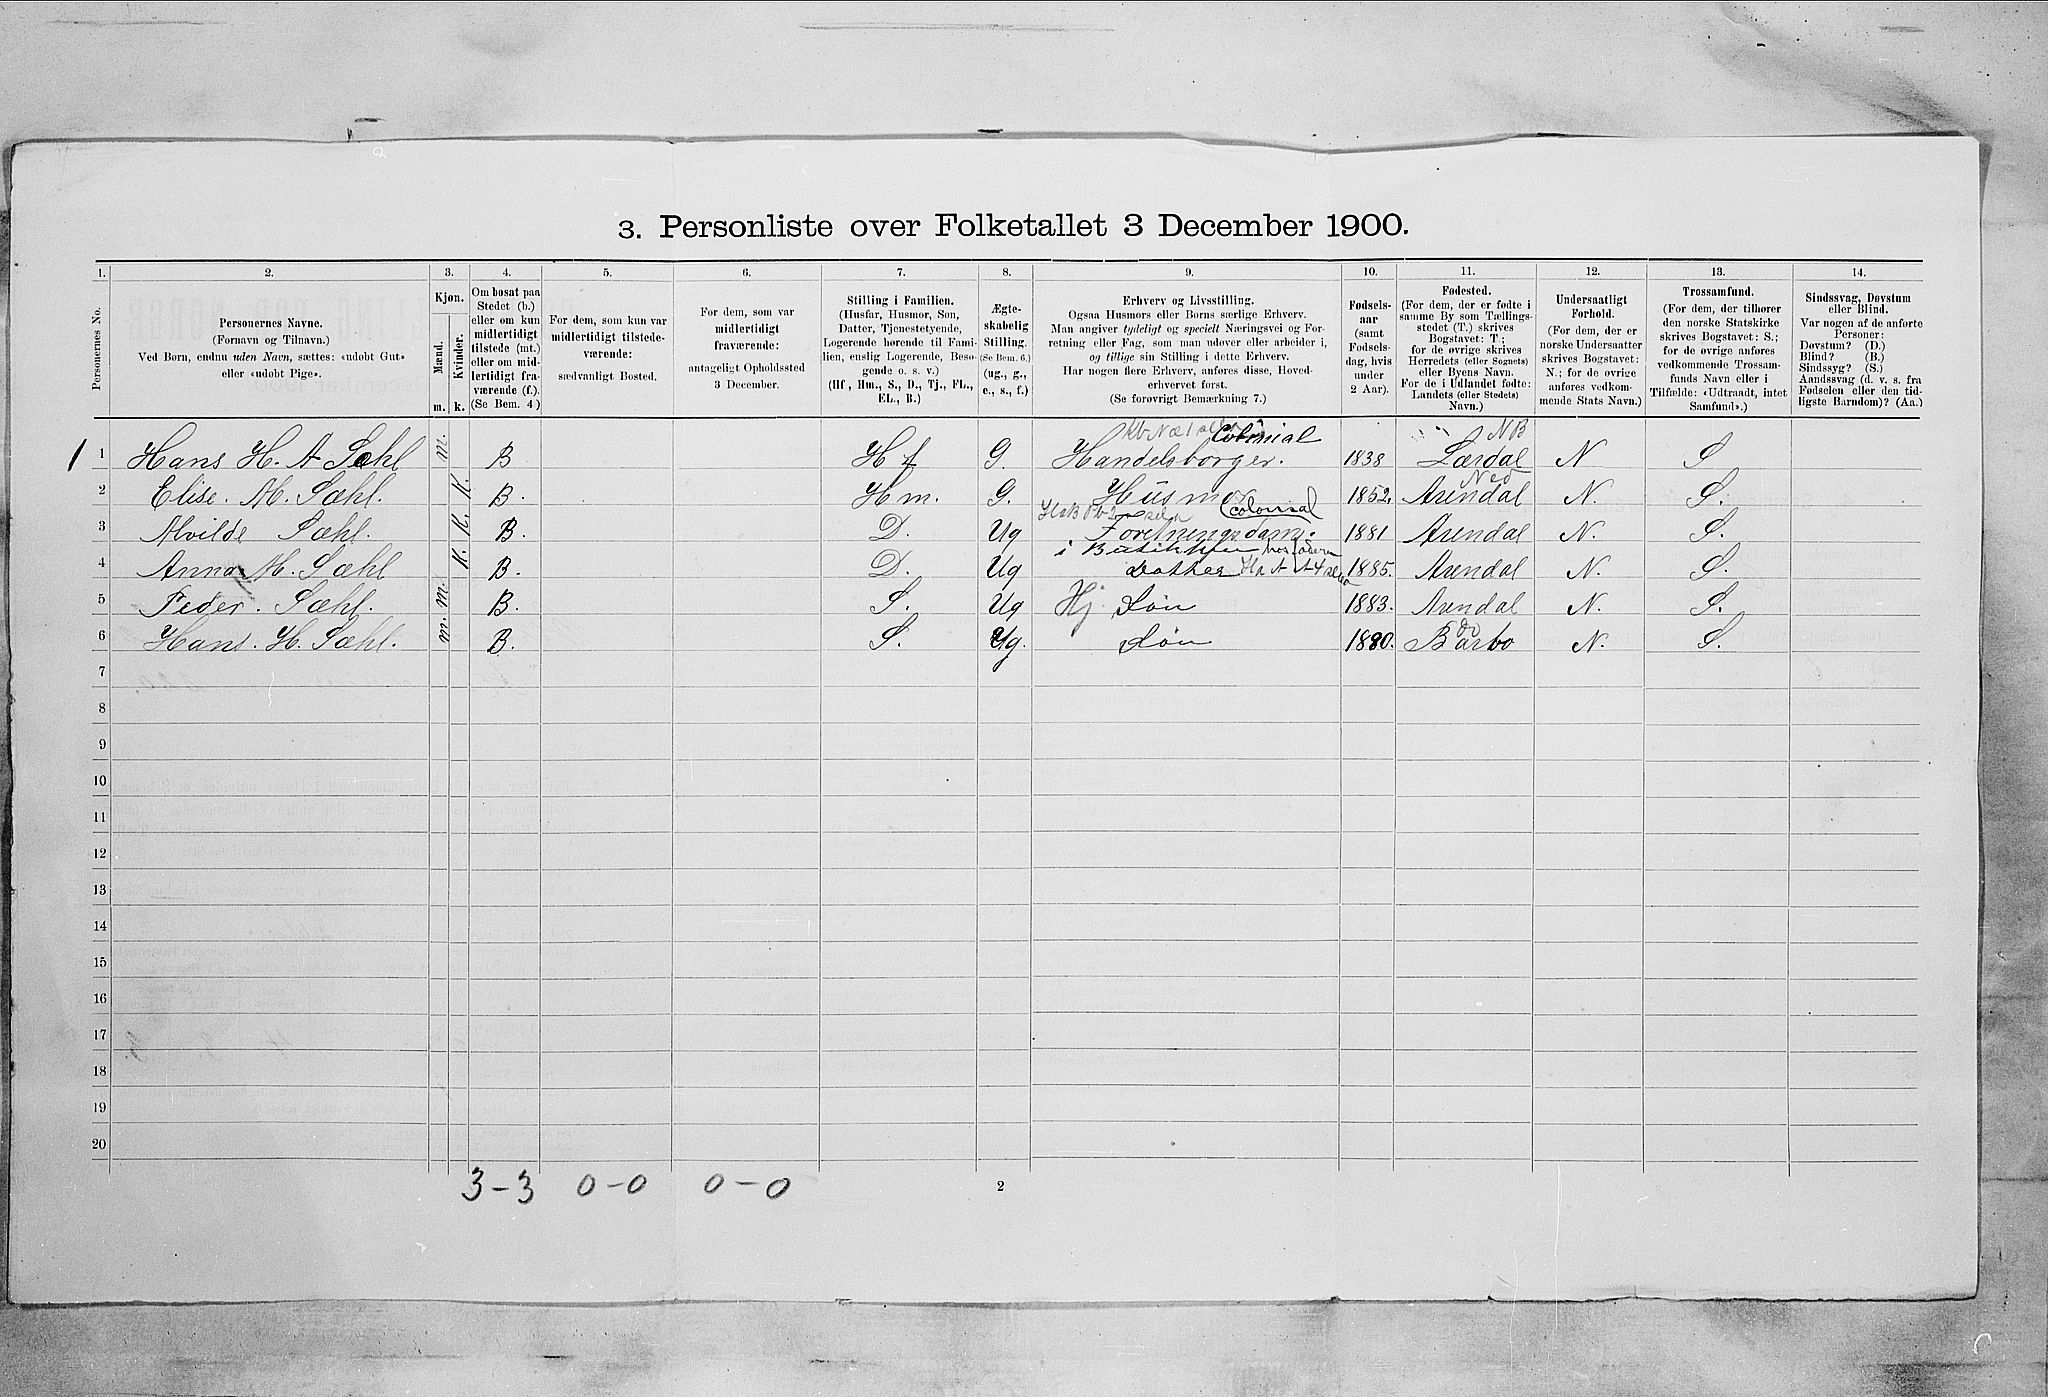 3. Personliste over Folketallet 3 December 1900.
1. 2. 3. 4. 5. 6. 7. 8. 9. 10. 11. 12. 13. 14.
Personernes No.
Personernes Navne.
(Fornavn og Tilnavn.)
Ved Børn, endnu uden Navn, sættes: «udøbt Gut»
eller «udøbt Pige».
Kjøn.
Mænd.
Kvinder.
m. k.
Om bosat paa
Stedet (b.)
eller om kun
midlertidigt
tilstede (mt.)
eller om mid-
lertidigt fra-
værende (f.).
(Se Bem. 4)
For dem, som kun var
midlertidigt tilstede-
værende:
sædvanligt Bosted.
For dem, som var
midlertidigt
fraværende:
antageligt Opholdssted
3 December.
Stilling i Familien.
(Husfar, Husmor, Søn,
Datter, Tjenestetyende,
Logerende hørende til Fami-
lien, enslig Logerende, Besø-
gende o. s. v.)
(Hf, Hm., S., D., Tj., FL.,
EL., B.)
Ægte-
skabelig
Stilling.
(Se Bem. 6.)
(ug., g.,
e., s., f.)
Erhverv og Livsstilling.
Ogsaa Husmors eller Børns særlige Erhverv.
Man angiver tydeligt og specielt Næringsvei og For-
retning eller Fag, som man udøver eller arbeider i,
og tillige sin Stilling i dette Erhverv.
Har nogen flere Erhverv, anføres disse, Hoved-
erhvervet først.
(Se forøvrigt Bemærkning 7.)
Fødsels-
aar
(samt
Fødsels-
dag, hvis
under
2 Aar).
Fødested.
(For dem, der er fødte i
samme By som Tællings-
stedet (T.) skrives
Bogstavet: T.;
for de øvrige skrives
Herredets (eller Sognets)
eller Byens Navn.
For de i Udlandet fødte:
Landets (eller Stedets)
Navn.)
Undersaatligt
Forhold.
(For dem, der er
norske Undersaatter
skrives Bogstavet:
N.; for de øvrige
anføres vedkom-
mende Stats Navn.)
Trossamfund.
(For dem, der tilhører
den norske Statskirke
skrives Bogstavet: S.;
for de øvrige anføres
vedkommende Trossam-
funds Navn eller i
Tilfælde: «Udtraadt, intet
Samfund».)
Sindssvag, Døvstum
eller Blind.
Var nogen af de anførte
Personer:
Døvstum? (D.)
Blind? (B.)
Sindssyg? (S.)
Aandssvag (d. v. s. fra
Fødselen eller den tid-
ligste Barndom)? (Aa.)
Colonial NB
1 1 Hans H. A Sæhl m. B Hf G. Handelsborger. 1838 Lærdal N S
Ned
2 Elise. M. Sæhl. K. B. Hm. G. Husmor 1852. Arendal N. S.
colonial
3 Alvilde Sæhl. K. B. D. Ug Foretningsdame 1881 Arendal N. S.
i Butikken hos faderen
4 Anna M. Sæhl K. B. D. Ug Datter 1885. Arendal N. S.
5 Peder. Sæhl. m. B. S. Ug Hj. Søn 1883. Arendal N. S.
do
6 Hans. H. Sæhl. m. B. S. Ug. Søn 1880. Barbo N. S.
7
8
9
10
11
12
13
14
15
16
17
18
19
20
3-3 0-0 0-0 2